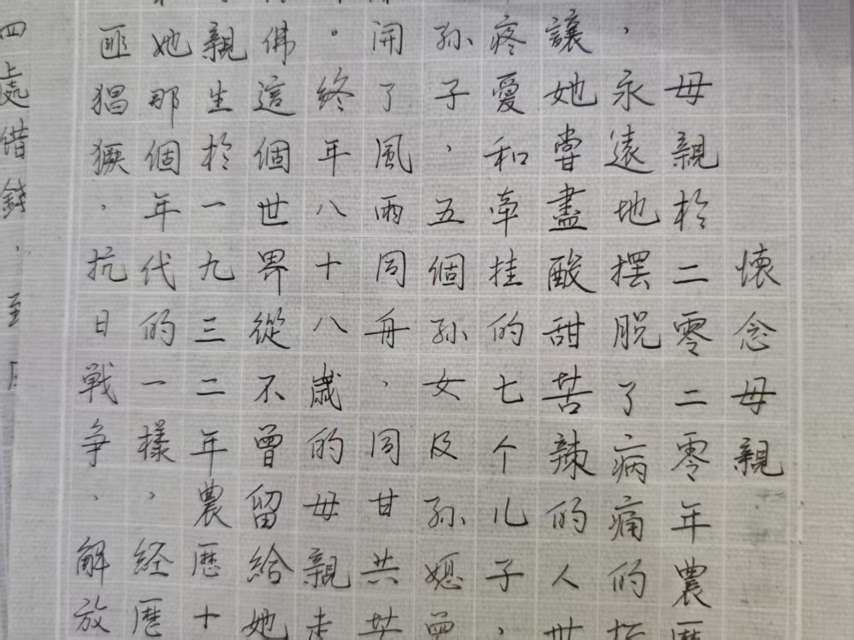 懷念母親
母親於二零二零年農歷
永遠地擺脫了病痛的折
，讓她嘗盡酸甜苦辣的人世
疼愛和牽挂的七个儿子，
孙子，五個孙女及孙媳
開了風雨同舟，同甘共苦
。終年八十八歲的母親走
佛這個世界從不曾留給她
親生於一九三二年農歷十
她那個年代的一樣，経歷
匪猖獗，抗日戰争、解放
四處借錢，至